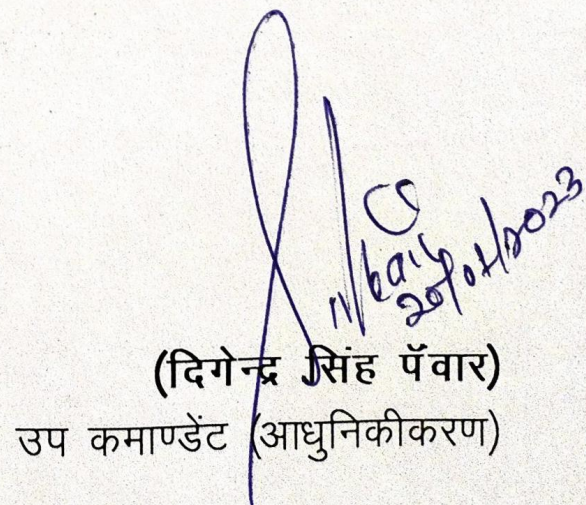 20/01/2023
(दिगेन्द्र सिंह पॅवार)
उप कमाण्डेंट (आधुनिकीकरण)